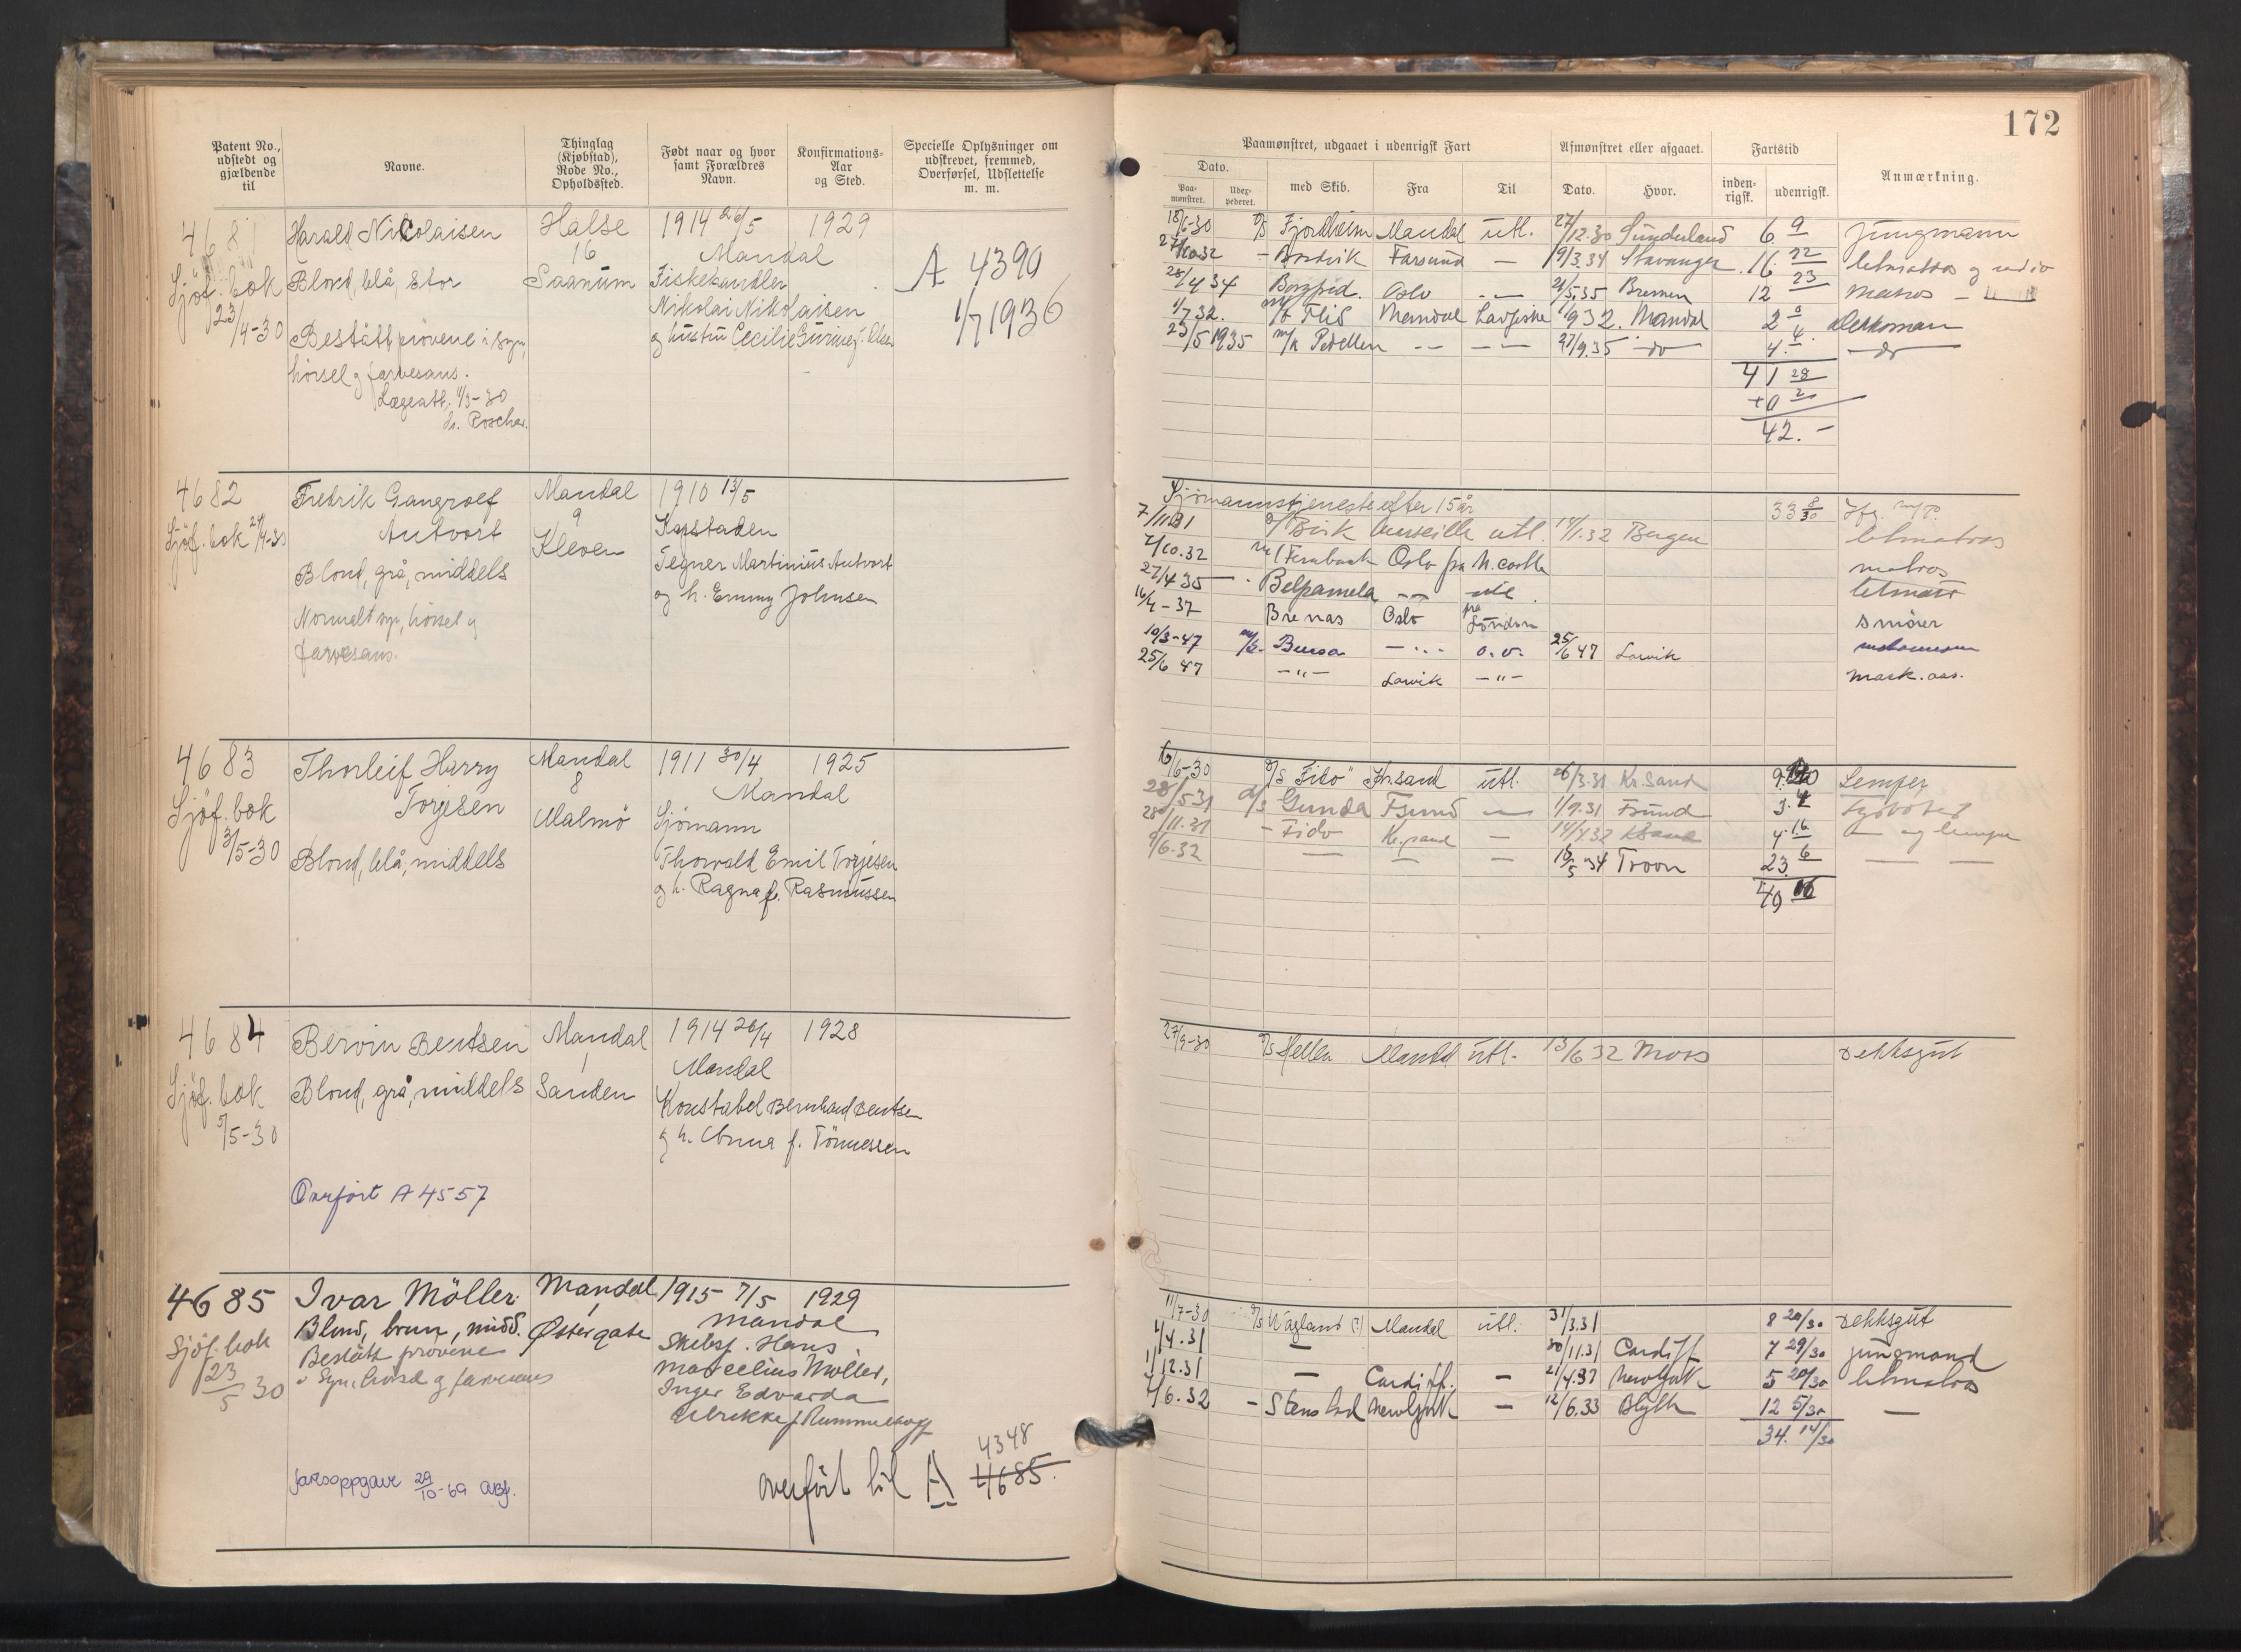 172
Patent No., udstedt og gjældende til
Navne.
Thinglag (Kjøbstad), Rode No., Opholdssted.
Født naar og hvor samt Forældres Navn.
Konfirmations-Aar og Sted.
Specielle Oplysninger om udskrevet, fremmed, Overførsel, Udslettelse m. m.
Paamønstret, udgaaet i udenrigsk Fart
Dato.
Paa-mønstret.
Udex-pederet.
med Skib.
Fra
Til
Afmønstret eller afgaaet.
Dato.
Hvor.
Fartstid
inden-rigsk.
udenrigsk.
Anmærkning.
4681
Sjöf. bok
23/4-30
Harald Nicolaisen
Blond, blå, stor
Bestått prövene i syn,
hörsel og farvesans.
Lægeatt. 4/3-30
Halse
16
Saanum
1914 26/5 1929
Mandal
Fiskehandler
Nikolai Nikolaisen
og hustru Cecilie
A 4390
1/7 1936
18/6-30 D/S Fjordheim Mandal utl. 27/12.30 Sunderland 6 9 jungmann
27/10 32 - Farsund — 19/3.34 Stavanger 16 22 letmatros og
28/4 34 Oslo -"- 21/5.35 Bremen 12 23 Matros
1/7 32. Flid Mandal 1/9 32. Mandal 2 0
23/5 1935 m/k Pedellen -- -- 27/9.35 -do- 4. 4 -do-
41 28
+0 2
42. -
4682
Sjöf. bok 29/4-30
Fredrik Gangrolf
Autvort
Blond, grå, middels
Normalt syn, hörsel og
farvesans.
Mandal
9
Kleven
1910 13/5
Kapstaden
Tegner Martinius Autvort
og h. Emmy Johnsen
Sjömannstjeneste efter 15 år 33 8/30
7/11 31 Birk Marseille utl. 14/1.32 Bergen letmatros
7/10.32 Fernbank Oslo fra N.castle matros
27/4 35 Belpamela -"- utl.
16/4-37 Brenas Oslo fra London smörer
10/3-47 Bursa -"- o.v. 25/6 47 Larvik
25/6 47 -"- Larvik -"- mask. ass.
4683
Sjöf. bok
3/5-30
Thorleif Harry
Torjesen
Blond, blå, middels
Mandal
8
Malmö
1911 30/4 1925
Mandal
Sjömann
Thorvald Emil Torjesen
og h. Ragna f. Rasmussen
16/6-30 D/S "Fido" Kr.sand utl. 26/3.31 Kr.Sand Lemper
28/5 31 D/S Gunda Fsund — 1/9.31 Fsund 3. 4 Fyrböter
28/11.31 - Fido Kr.sand — 14/4 32 4. 16 — og lemper
9/6.32 — — — 10/5 34 Troon 23. 6 — —
40 06
4684
Sjöf. bok
5/5-30
Bervin Bentsen
Blond, grå, middels
Overfört A 4557
Mandal
1
Sanden
1914 26/4 1928
Mandal
Konstabel Bernhard Bentsen
og h. Anna f. Tönnessen
27/9-30 D/S Hellen Mandal utl. 13/6 32 Moss Dekksgut
4685
Sjöf. bok
23/5 30
Ivar Möller
Blond, brun, midd.
Bestått prövene
i Syn, hörsel og farvesans
fartsoppgave 29/10-69
Mandal
1
Östergate
1915 7/5 1929
Mandal
Skibsf. Hans
Marcelius Möller,
Inger Edvarda
Ulrikke f. Rummelhoff
4348
overfört til A 4685.
11/7-30 D/S Vagland (?) Mandal utl. 31/3.31 8 20/30 Dekksgut
1/4.31 — 30/11.31 Cardiff 7 29/30 jungmand
1/12.31 — Cardiff. — 21/4.32 New York 5 20/30 letmatros
7/6.32 - Stensbad New York — 12/6.33 Blyth 12 5/30 —
34. 14/30